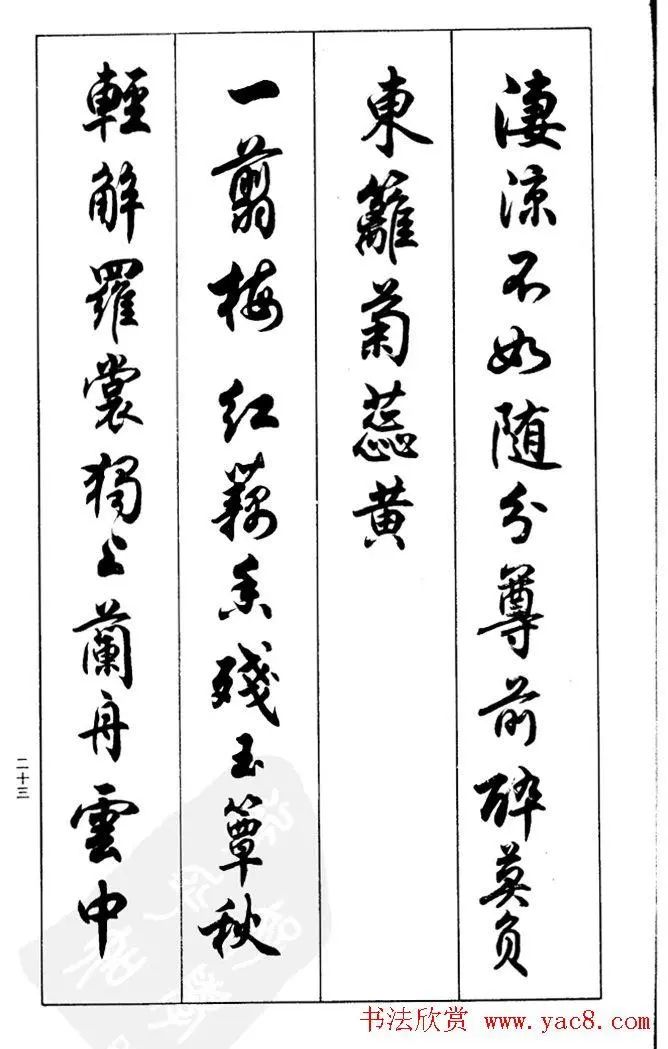 淒涼不如随分尊前醉莫負
東籬菊蕊黄
一翦梅 红藕香殘玉簟秋
輕解羅裳獨上蘭舟雲中
二十三
书法欣赏 www.yac8.com